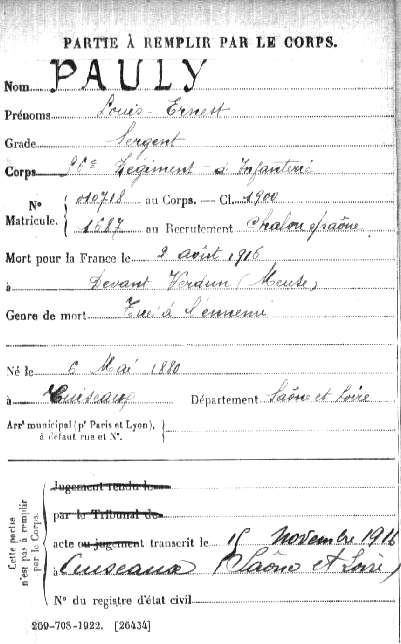 PARTIE À REMPLIR PAR LE CORPS.
Nom PAULY
Prénoms Louis-Ernest
Grade Sergent
Corps Régiment d'Infanterie
N° Matricule. 010718 au Corps. — Cl. 1900
1687 au Recrutement Chalon s/saône
Mort pour la France le 2 août 1916
à Devant Verdun (Meuse)
Genre de mort Tué à l'ennemi
Né le 6 Mai 1880
à Cuiseaux Département Saône et Loire
Arr' municipal (p' Paris et Lyon),
à défaut rue et N°.
Cette partie n'est pas à remplir par le Corps.
Jugement rendu le
par le Tribunal de
acte ou jugement transcrit le 15 Novembre 1916
à Cuiseaux (Saône et Loire)
N° du registre d'état civil
269-708-1922. [26434]